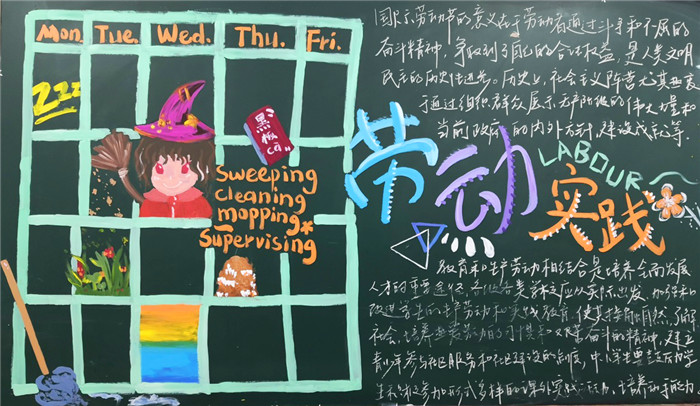 Mon. Tue. Wed. Thu. Fri.
zzz
黑板
cā
Sweeping
cleaning
mopping*
Supervising
国际劳动节的意义在于劳动者通过斗争和不屈的
奋斗精神，争取到了自己的合法权益，是人类文明
民主的历史性进步。历史上，社会主义阵营尤其
于通过组织群众展示无产阶级的伟大力量和
当前政府的内外方针，建设成就等。
劳动
LABOUR
实践
教育和生产劳动相结合是培养全面发展
人才的重要途径，各级各类学校应从实际出发，加强和
改进学生的生产劳动和实践教育，使其接触自然，了解
社会，培养热爱劳动的习惯和艰苦奋斗的精神，建立
青少年参与社区服务和社区建设的制度，中小学生要
参加形式多样的课外实践活动，培养动手能力